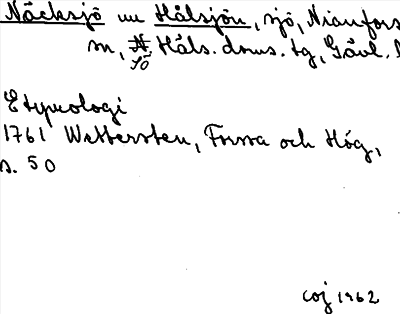 Näcksjö nu Hålsjön, sjö, Nianfors
sn, Håls. doms. tg, Gävl. l
Sö
Etymologi
1761 Wettersten, Forssa och Hög,
s. 50
coj 1962